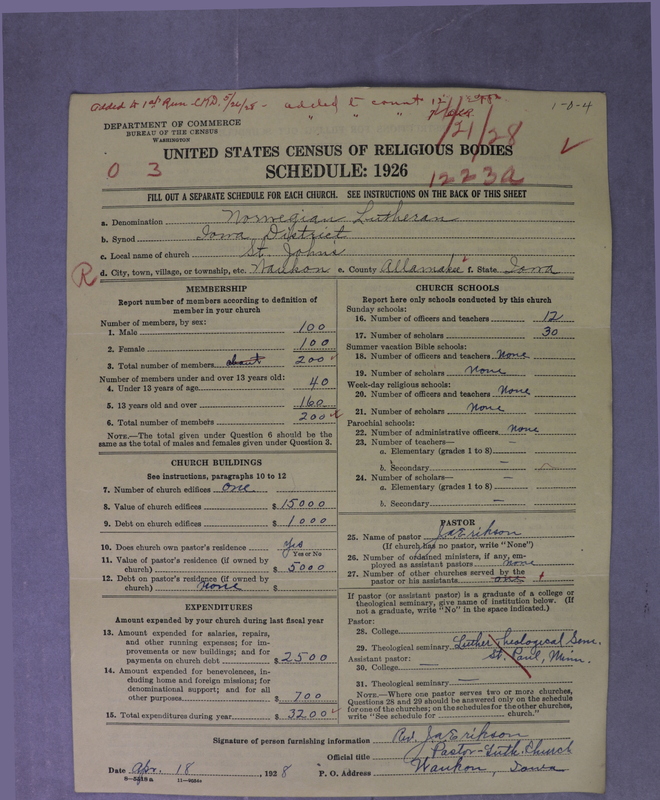 Added to 1st Run C.M.D. 5/21/28 - added to count
1-D-4
DEPARTMENT OF COMMERCE
BUREAU OF THE CENSUS
WASHINGTON
21/28
UNITED STATES CENSUS OF RELIGIOUS BODIES
0 3
SCHEDULE: 1926
1223a
FILL OUT A SEPARATE SCHEDULE FOR EACH CHURCH. SEE INSTRUCTIONS ON THE BACK OF THIS SHEET
a. Denomination Norwegian Lutheran
b. Synod Iowa District
c. Local name of church St. Johns
R d. City, town, village, or township, etc. Waukon e. County Allamakee f. State Iowa
MEMBERSHIP
Report number of members according to definition of
member in your church
Number of members, by sex:
1. Male 100
2. Female 100
3. Total number of members about 200
Number of members under and over 13 years old:
4. Under 13 years of age 40
5. 13 years old and over 160
6. Total number of members 200
NOTE.—The total given under Question 6 should be the
same as the total of males and females given under Question 3.
CHURCH BUILDINGS
See instructions, paragraphs 10 to 12
7. Number of church edifices One
8. Value of church edifices $ 15000
9. Debt on church edifices $ 1000
10. Does church own pastor's residence Yes
Yes or No
11. Value of pastor's residence (if owned by
church) $ 5000
12. Debt on pastor's residence (if owned by
church) none $
EXPENDITURES
Amount expended by your church during last fiscal year
13. Amount expended for salaries, repairs,
and other running expenses; for im-
provements or new buildings; and for
payments on church debt $ 2500
14. Amount expended for benevolences, in-
cluding home and foreign missions; for
denominational support; and for all
other purposes $ 700
15. Total expenditures during year $ 3200
CHURCH SCHOOLS
Report here only schools conducted by this church
Sunday schools:
16. Number of officers and teachers 12
17. Number of scholars 30
Summer vacation Bible schools:
18. Number of officers and teachers None
19. Number of scholars None
Week-day religious schools:
20. Number of officers and teachers None
21. Number of scholars None
Parochial schools:
22. Number of administrative officers None
23. Number of teachers—
a. Elementary (grades 1 to 8) —
b. Secondary —
24. Number of scholars—
a. Elementary (grades 1 to 8) —
b. Secondary —
PASTOR
25. Name of pastor J A Erikson
(If church has no pastor, write "None")
26. Number of ordained ministers, if any, em-
ployed as assistant pastors none
27. Number of other churches served by the
pastor or his assistants one
If pastor (or assistant pastor) is a graduate of a college or
theological seminary, give name of institution below. (If
not a graduate, write "No" in the space indicated.)
Pastor:
28. College
29. Theological seminary Luther Theological Sem.
Assistant pastor: St. Paul, Minn.
30. College —
31. Theological seminary —
NOTE.—Where one pastor serves two or more churches,
Questions 28 and 29 should be answered only on the schedule
for one of the churches; on the schedules for the other churches,
write "See schedule for church."
Signature of person furnishing information Rev. J A Erikson
Official title Pastor-Luth. Church
Date Apr. 18, 1928 P. O. Address Waukon, Iowa